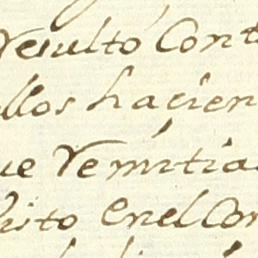 Resultó Cont
llos hacien
ue Remitia
hito en el Con